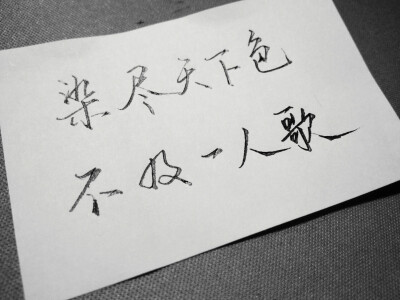 染尽天下色
不及一人歌